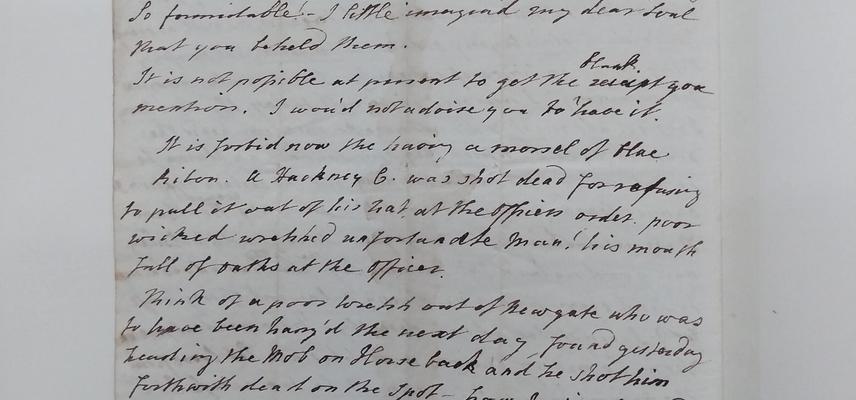 So formidable! - I little imagin'd my dear Soul
that you beheld them.
blank
It is not possible at present to get the reciept you
mention. I wou'd not advise you to have it.
It is forbid now the having a morsel of blue
Ribon. A Hackney C. was shot dead for refusing
to pull it out of his hat, at the officers order. poor
wicked wretched unfortunate Man! his mouth
full of oaths at the officer.
Think of a poor wretch out of Newgate who was
to have been hang'd the next day, found yesterday
heading the Mob on Horse back and he shot him
forthwith dead on the spot -